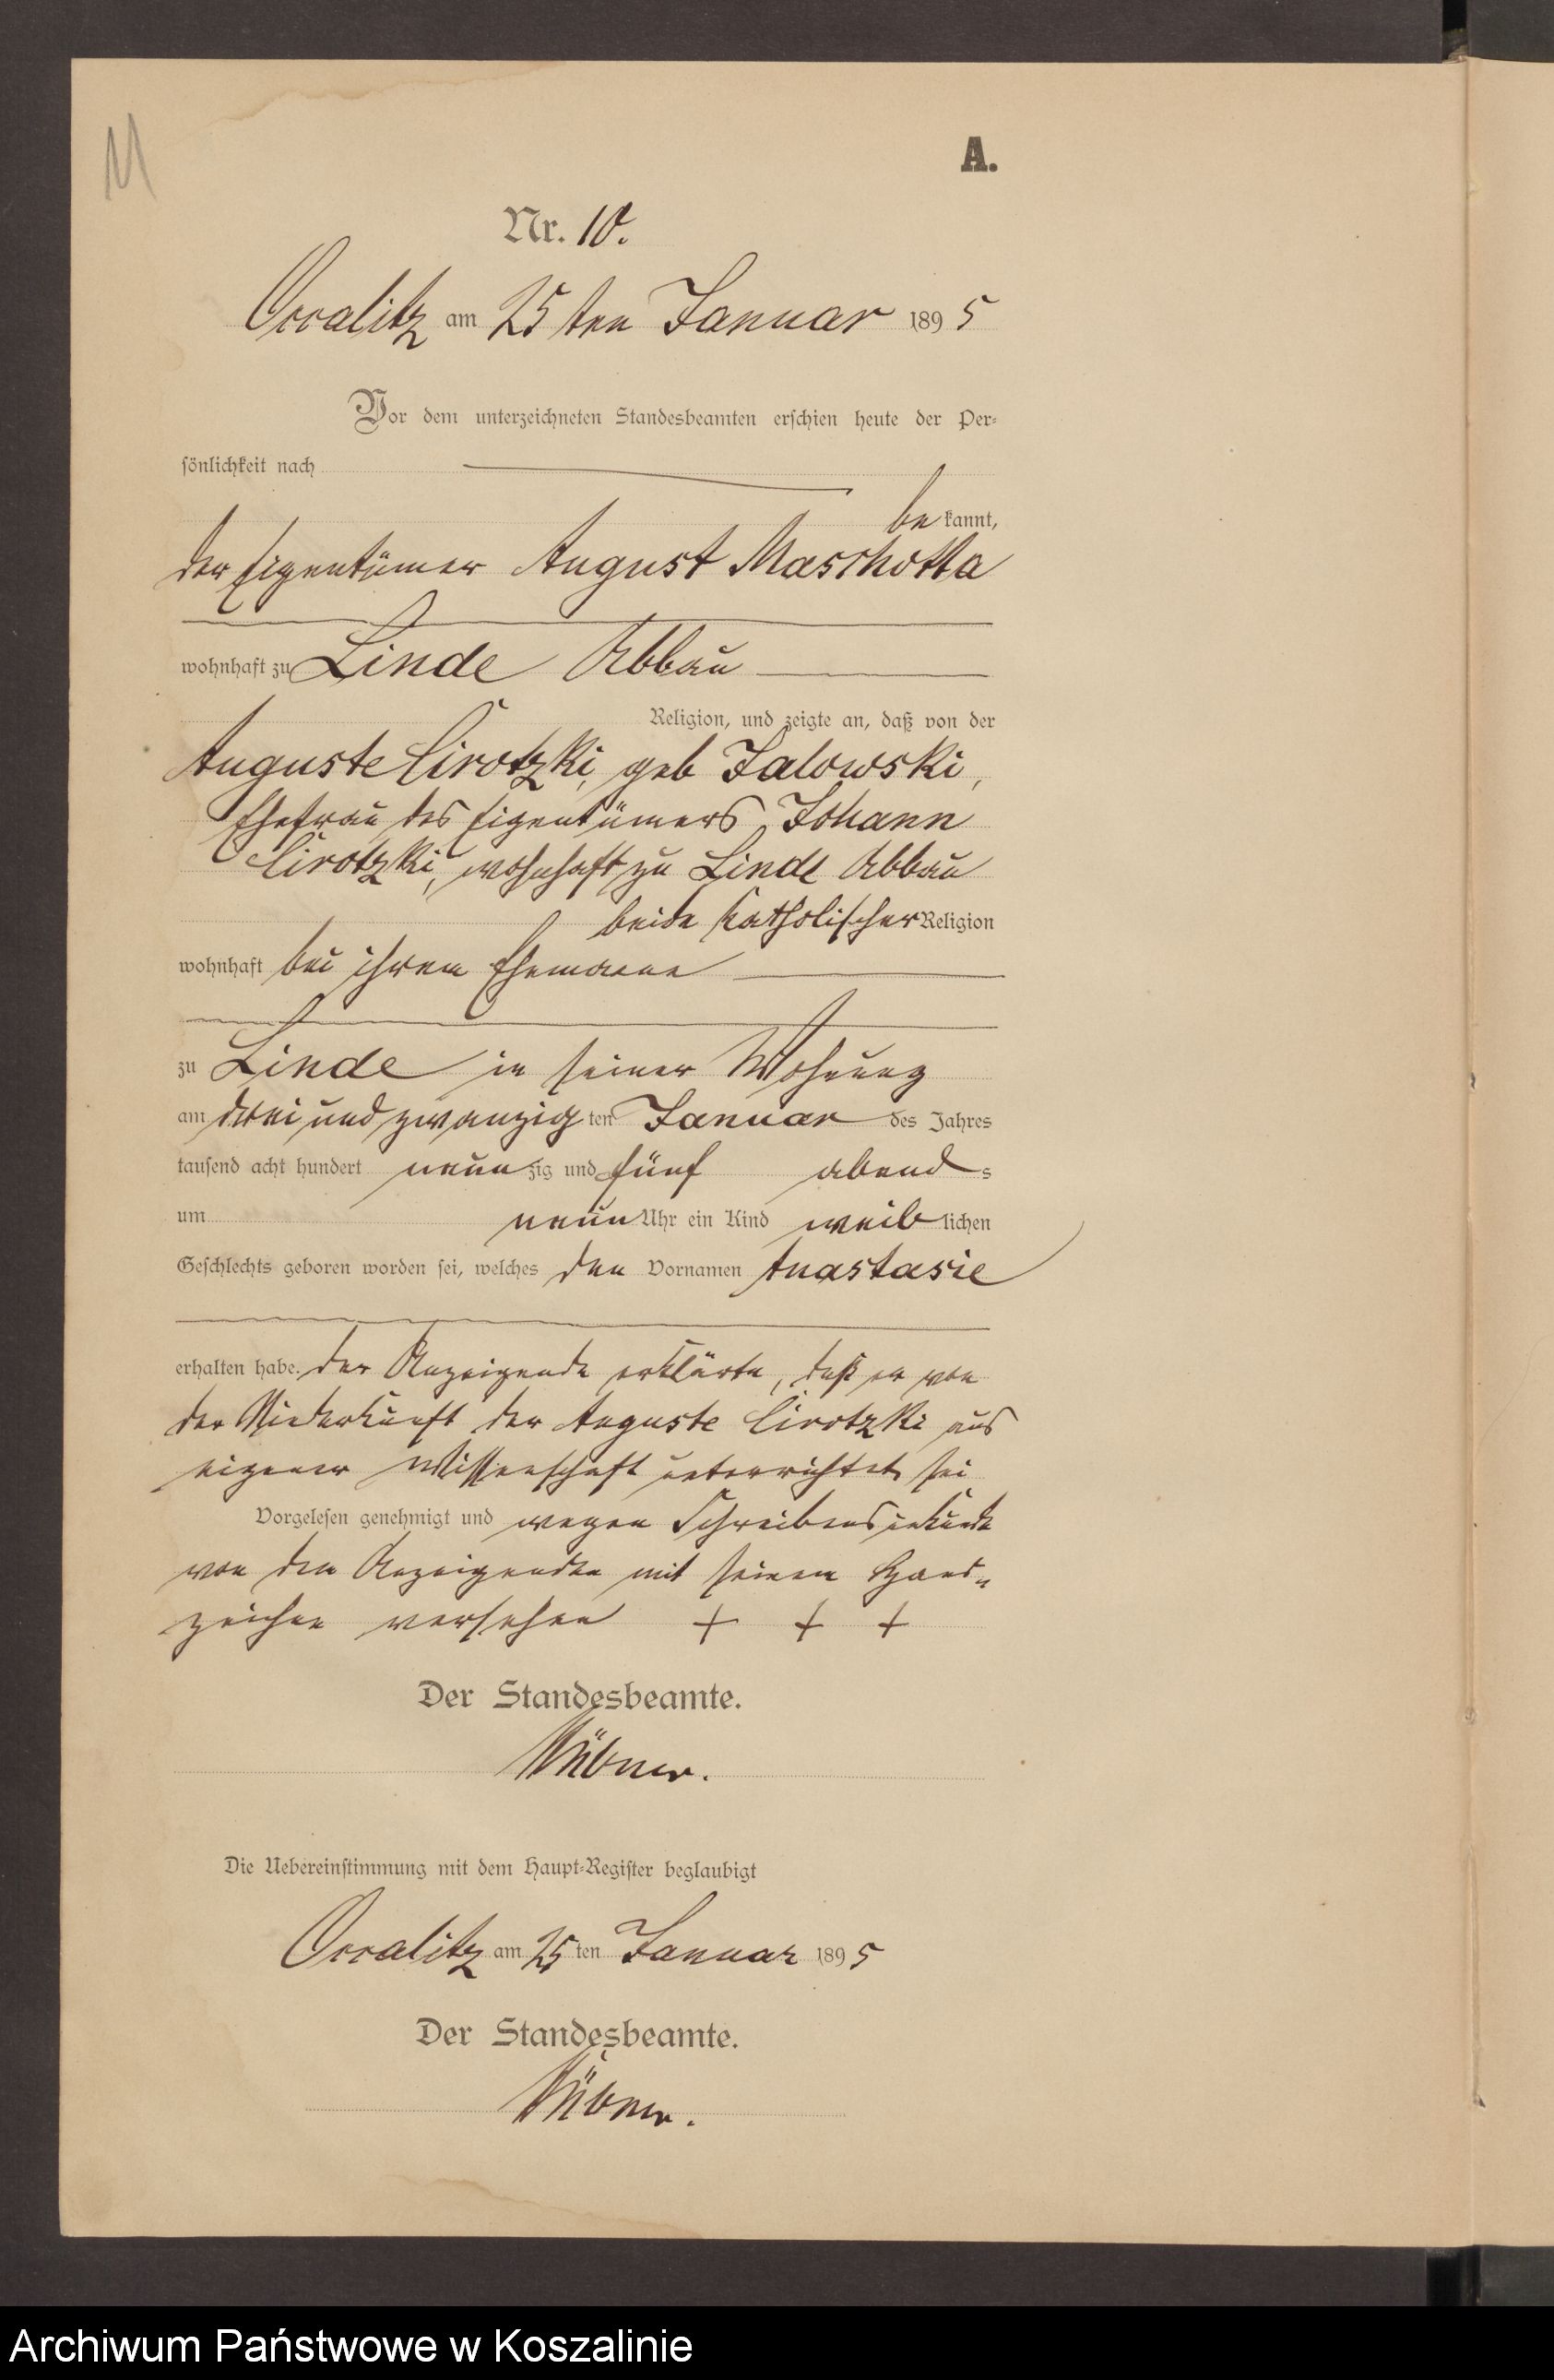 11
A.
Nr. 10.
Ossalitz am 25ten Januar 1895
Vor dem unterzeichneten Standesbeamten erschien heute der Per-
sönlichkeit nach
bekannt,
der Eigentümer August Maschotta
wohnhaft zu Linde Abbau
Religion, und zeigte an, daß von der
Auguste Cirotzki, geb Jalowski,
Ehefrau des Eigentümers Johann
Cirotzki, wohnhaft zu Linde Abbau
beide katholischer Religion
wohnhaft bei ihrem Ehemanne
zu Linde in seiner Wohnung
am drei und zwanzigten Januar des Jahres
tausend acht hundert neunzig und fünf abends
um neun Uhr ein Kind weiblichen
Geschlechts geboren worden sei, welches den Vornamen Anastasie
erhalten habe. Der Anzeigende erklärte, daß er von
der Niederkunft der Auguste Cirotzki aus
eigener Wissenschaft unterrichtet sei
Vorgelesen genehmigt und wegen Schreibensunkunde
von dem Anzeigenden mit seinem Hand-
zeichen versehen + + +
Der Standesbeamte.
Die Uebereinstimmung mit dem Haupt-Register beglaubigt
Ossalitz am 25ten Januar 1895
Der Standesbeamte.
Archiwum Państwowe w Koszalinie